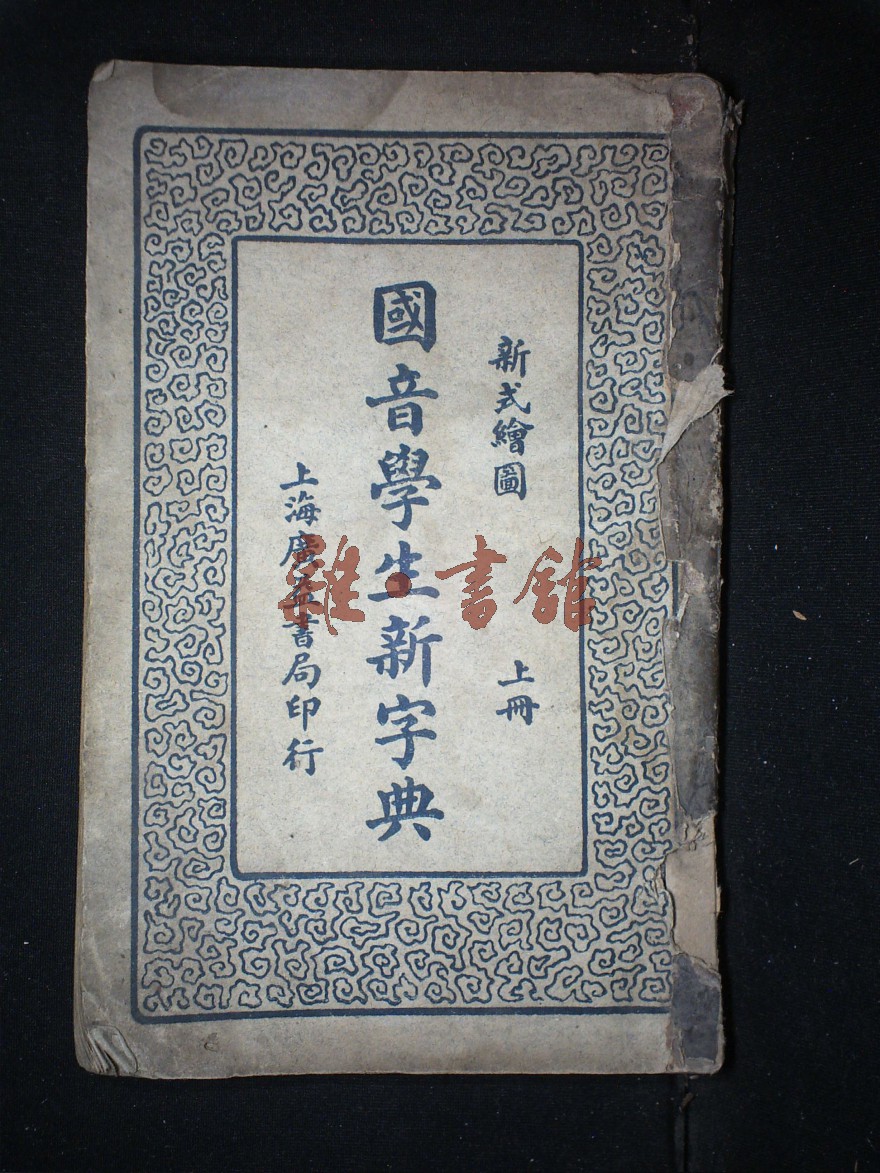 新式繪圖 上冊
國音學生新字典
上海廣益書局印行
雜·書館